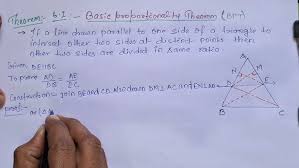 Theorem:- 6.1 :- Basic proportionality Theorem (BPT)
→ If a line drawn parallel to one side of a triangle to
intersect other two sides at distinct points then
other two sides are divided in same ratio.
Given: DE||BC
To prove AD/DB = AE/EC
Construction:- Join BE and CD and draw DM⊥AC and EN⊥AB
proof:- ar(Δ
A
N
M
D
E
B
C